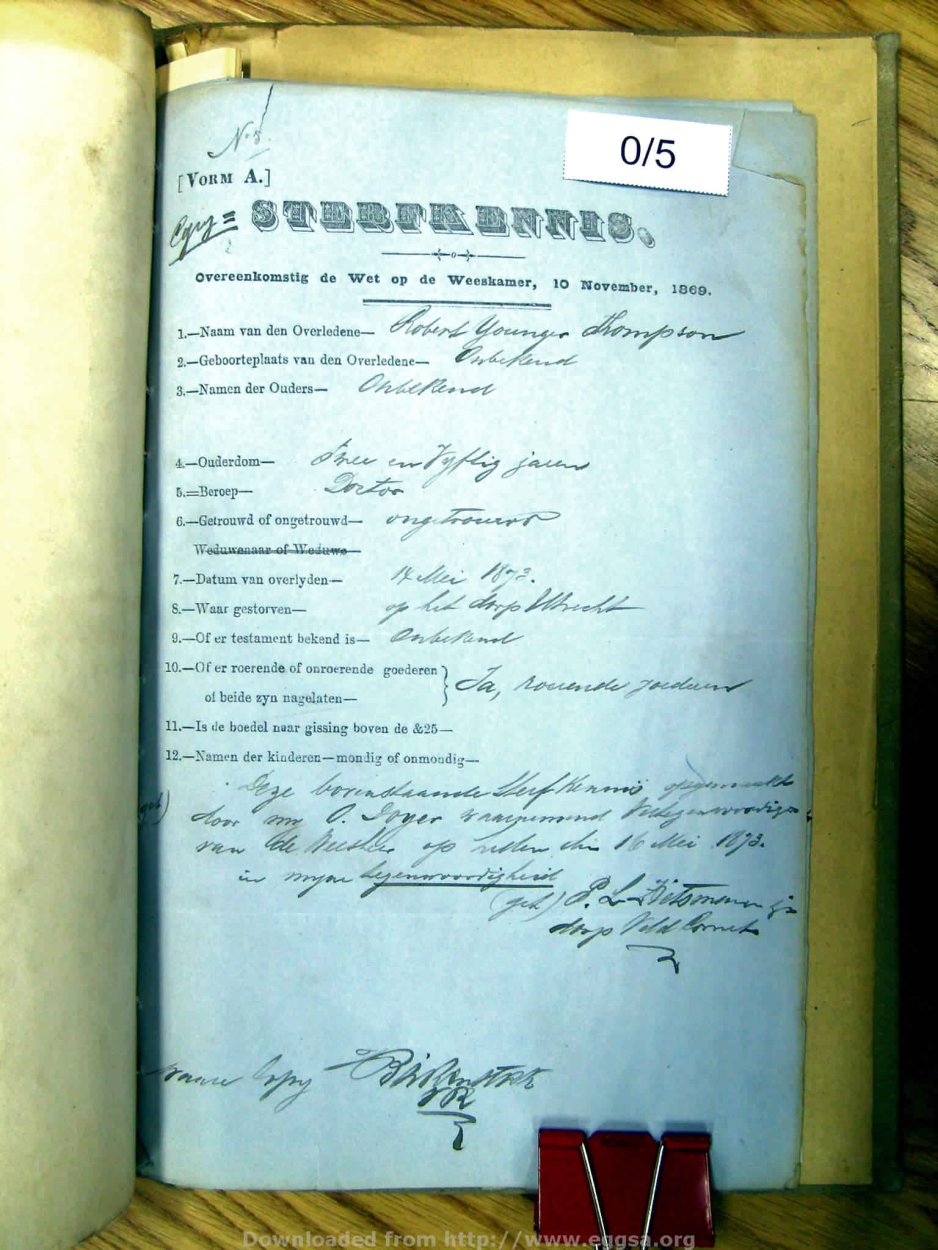 No 5
0/5
[VORM A.]
Copy =
STERFKENNIS.
Overeenkomstig de Wet op de Weeskamer, 10 November, 1869.
1.—Naam van den Overledene— Robert Younger Thompson
2.—Geboorteplaats van den Overledene— Onbekend
3.—Namen der Ouders— Onbekend
4.—Ouderdom— Twee en Vyftig jaren
5.—Beroep— Doctor
6.—Getrouwd of ongetrouwd— ongetrouwd
Weduwenaar of Weduwe—
7.—Datum van overlyden— 14 Mei 1873.
8.—Waar gestorven— op het dorp Utrecht
9.—Of er testament bekend is— Onbekend
10.—Of er roerende of onroerende goederen
of beide zyn nagelaten— Ja, roerende goederen
11.—Is de boedel naar gissing boven de &25—
12.—Namen der kinderen—mondig of onmondig—
Deze bovenstaande Sterf Kennis opgemaakt
(get) door my O. Doyer waarnemend
van de op heden den 16 Mei 1873.
in myne tegenwoordigheid
(get) P. L.
dorp Veld Cornet
ware Copy
Downloaded from http://www.eggsa.org